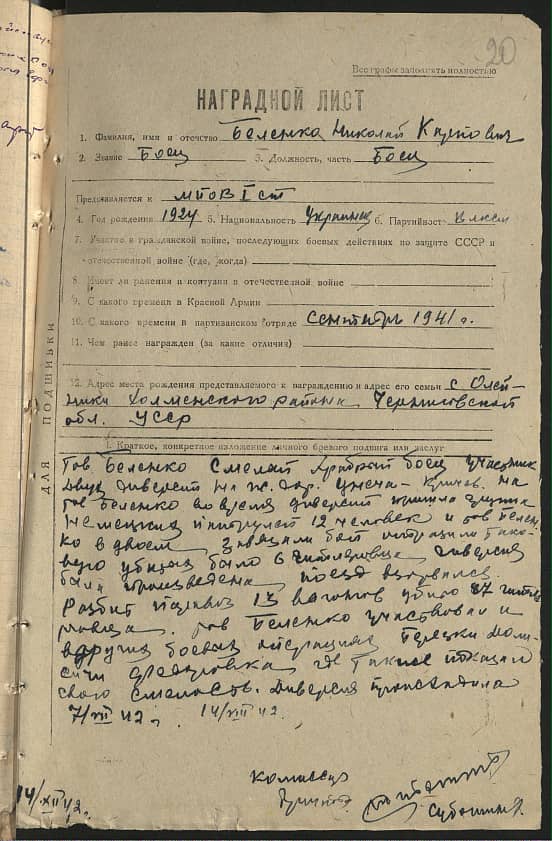 20
Все графы заполнять полностью
НАГРАДНОЙ ЛИСТ
1. Фамилия, имя и отчество Беленка Николай Карпович
2. Звание Боец 3. Должность, часть Боец
Представляется к МПОВ I ст
4. Год рождения 1924 5. Национальность Украинец 6. Партийность ВЛКСМ
7. Участие в гражданской войне, последующих боевых действиях по защите СССР и
отечественной войне (где, когда)
8. Имеет ли ранения и контузии в отечественной войне
9. С какого времени в Красной Армии
10. С какого времени в партизанском отряде сентябрь 1941 г.
11. Чем ранее награжден (за какие отличия)
12. Адрес места рождения представляемого к награждению и адрес его семьи с Олей-
ники Холменского района Черниговской
обл. УССР
1. Краткое, конкретное изложение личного боевого подвига или заслуг
Тов Беленко смелый храбрый боец участник
двух диверсий на ж. дор. Унеча - Кричев. На
тов Беленко во время диверсии пришла группа
немецких патрулей 12 человек и тов Белен
ко вдвоем завязали бой
убитых было 6 гитлеровца диверсия
была произведена поезд взорвался.
Разбит паровоз 13 вагонов убито 87 гитле
ровца. тов Беленко участвовал и
в других боевых операциях
где также показал
свою смелость. Диверсия
7/VIII 42. 14/XII 42.
комиссар
14/XII 42.
ДЛЯ ПОДШИВКИ